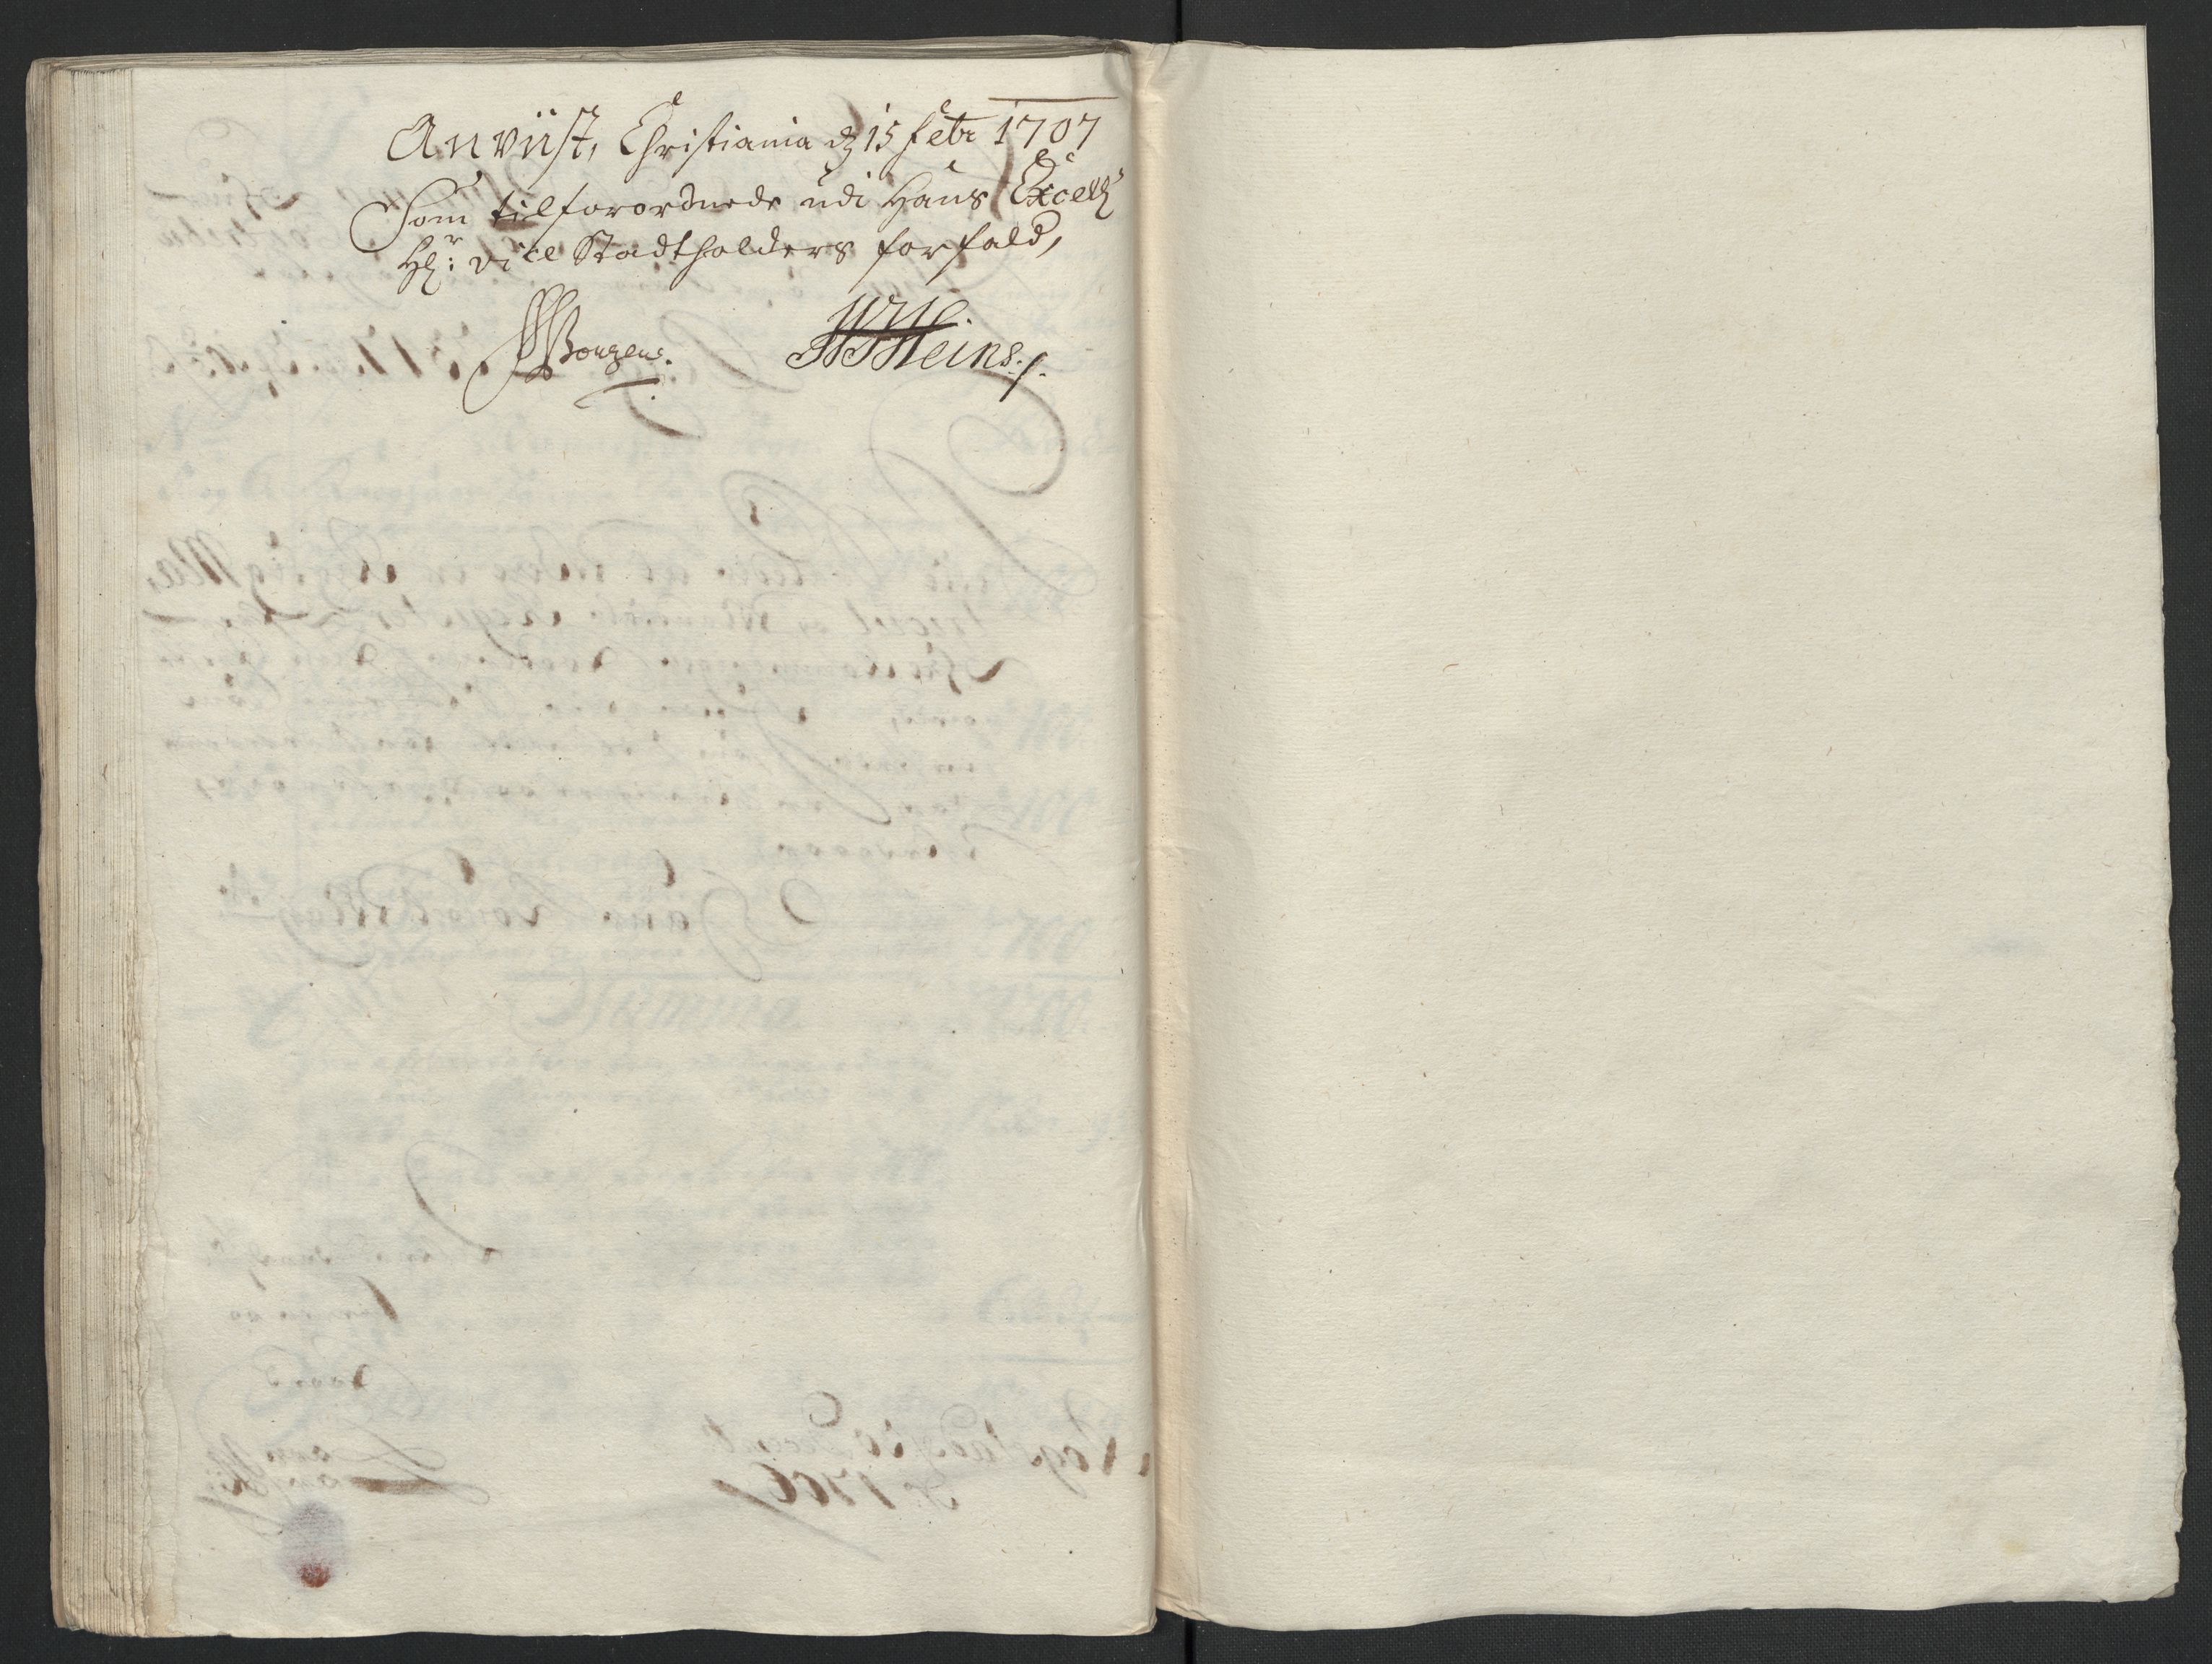 Anviist, Christiania d 15 febr 1707
Som tilforordnede udi Hans Excell
Hr: vice Stadtholders forfald,
Heins